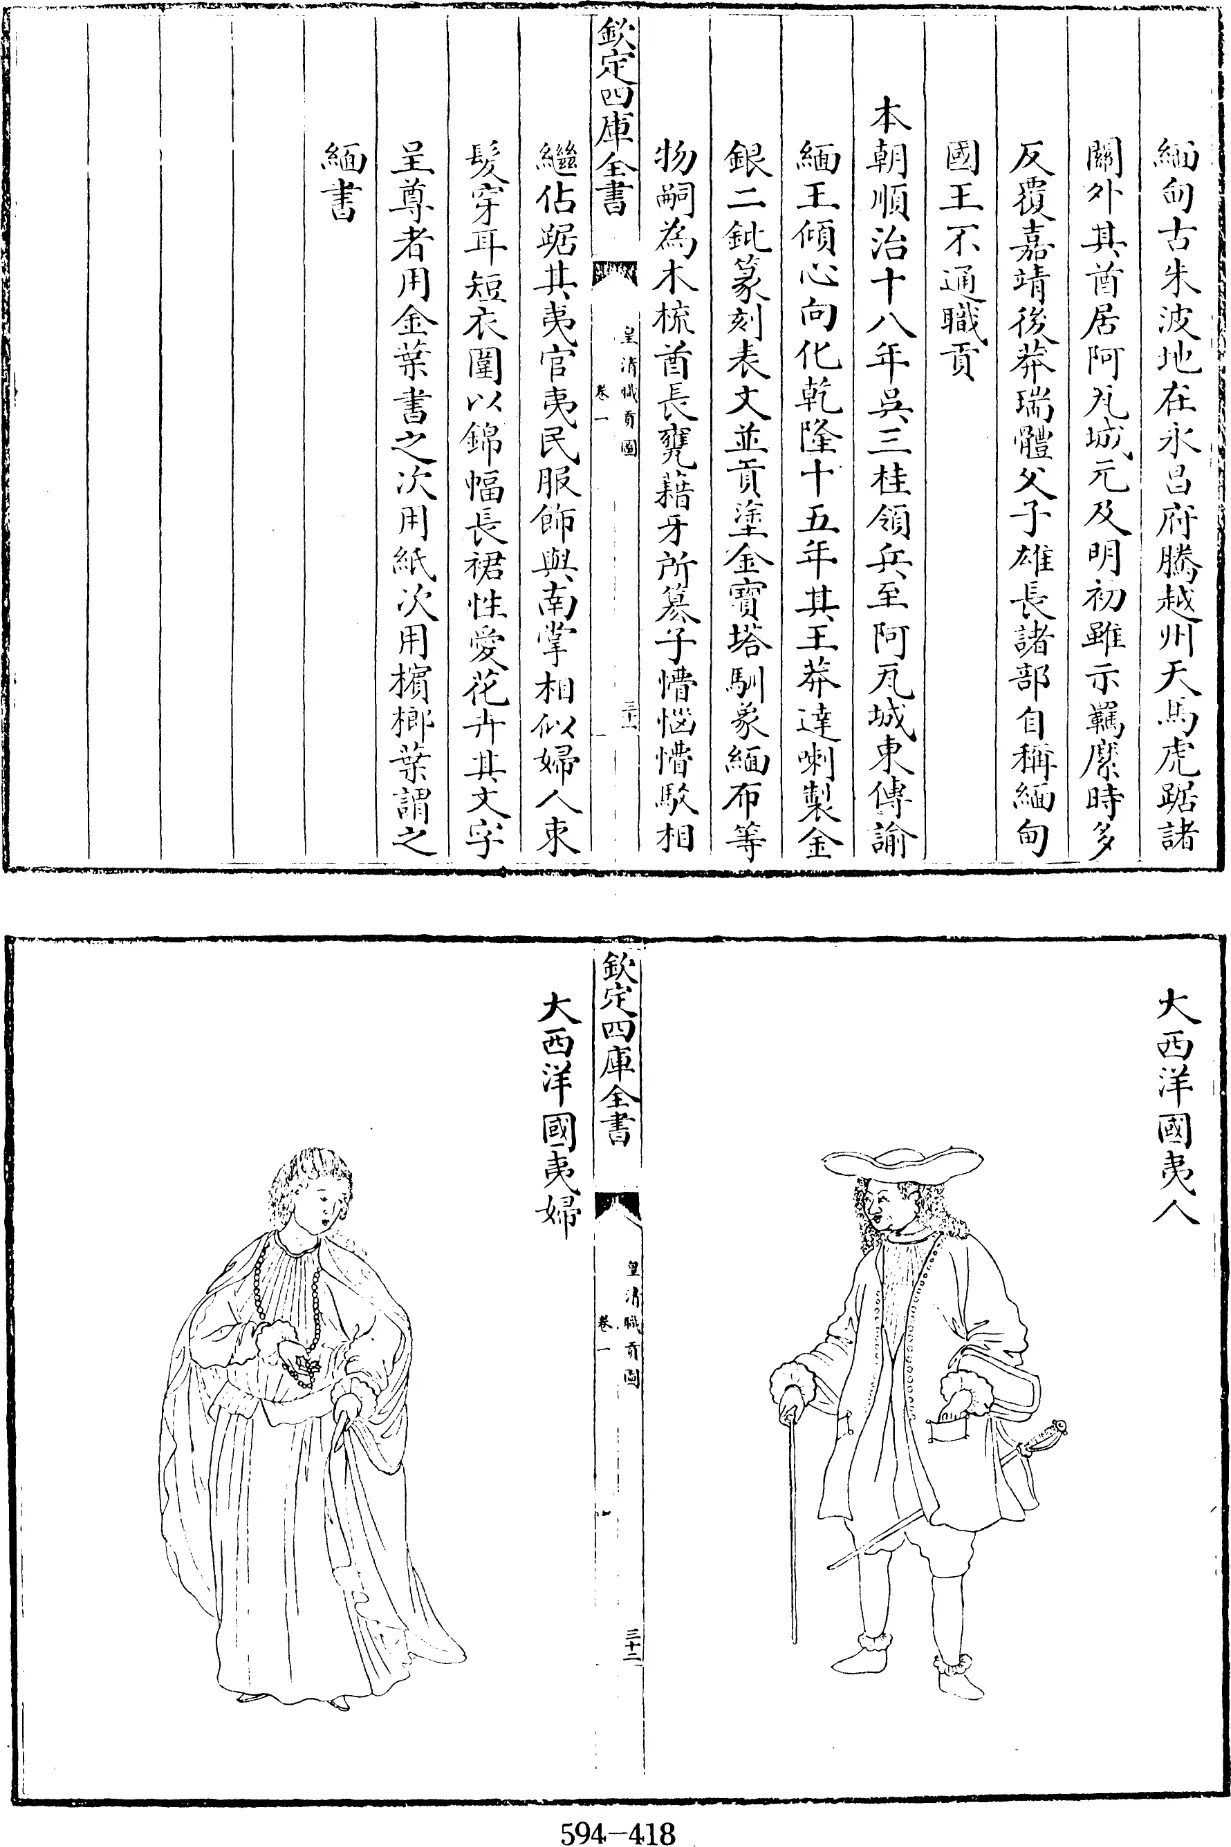 緬甸古朱波地在永昌府騰越州天馬虎踞諸
關外其酋居阿瓦城元及明初雖示羈縻時多
反覆嘉靖後莽瑞體父子雄長諸部自稱緬甸
國王不通職貢
本朝順治十八年吳三桂領兵至阿瓦城東傳諭
緬王傾心向化乾隆十五年其王莽達喇製金
銀二鈚篆刻表文並貢塗金寶塔馴象緬布等
物嗣為木梳酋長甕藉牙所篡子懵惱懵駁相
欽定四庫全書
皇清職貢圖
卷一
三十一
繼佔踞其夷官夷民服飾與南掌相似婦人束
髮穿耳短衣圍以錦幅長裙性愛花卉其文字
呈尊者用金葉書之次用紙次用檳榔葉謂之
緬書
大西洋國夷人
欽定四庫全書
皇清職貢圖
卷一
三十二
大西洋國夷婦
594-418